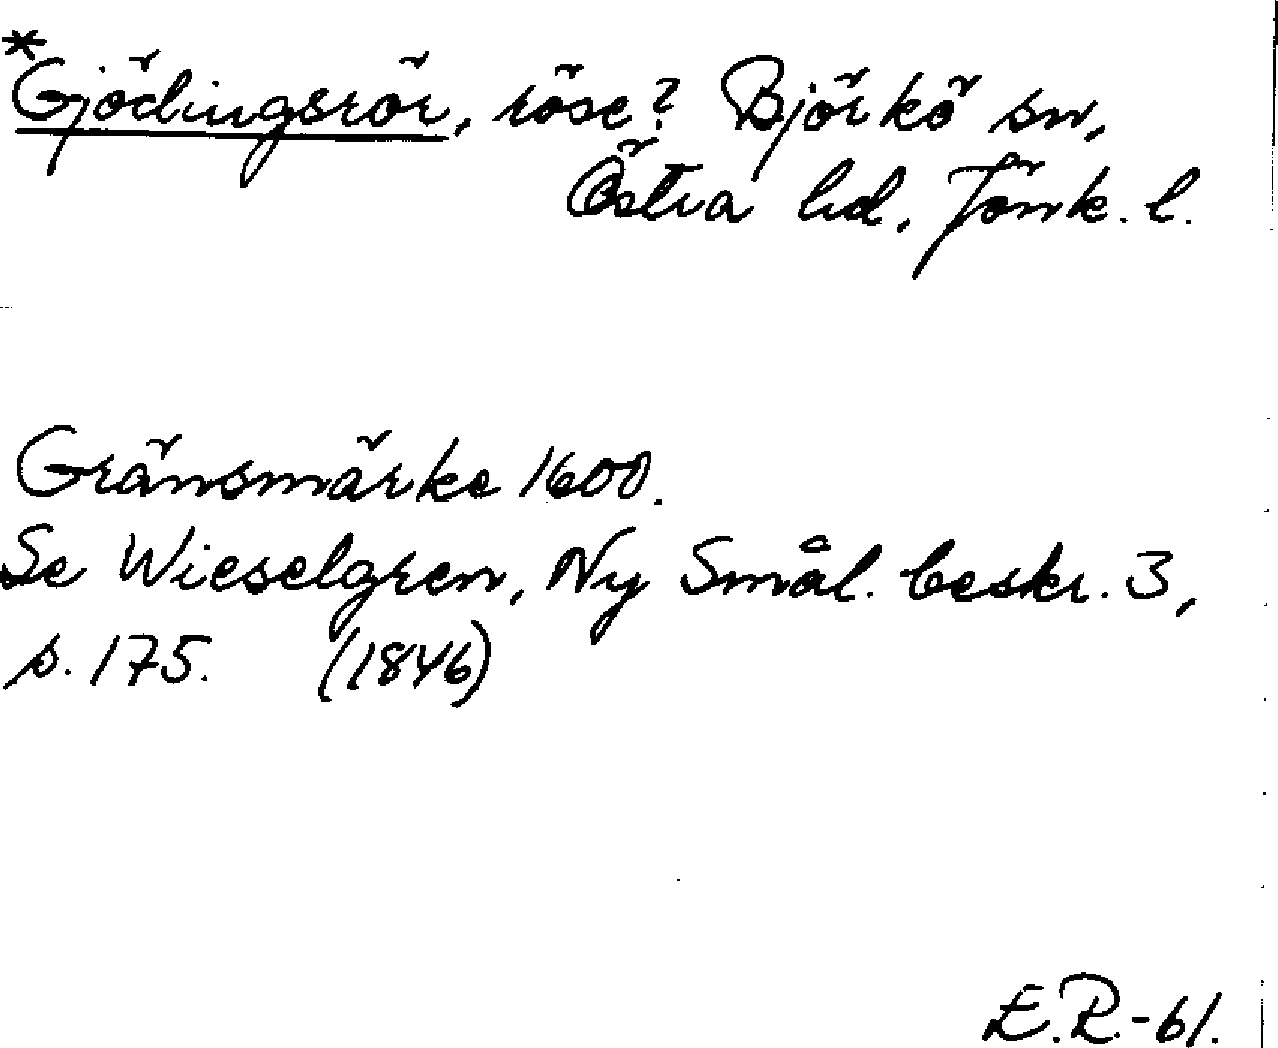 *Gjödingsrör, röse? Björkö sn,
Östra hd, Jönk. l.
Gränsmärke 1600.
Se Wieselgren, Ny Smål. beskr. 3,
s. 175. (1846)
E.R.-61.